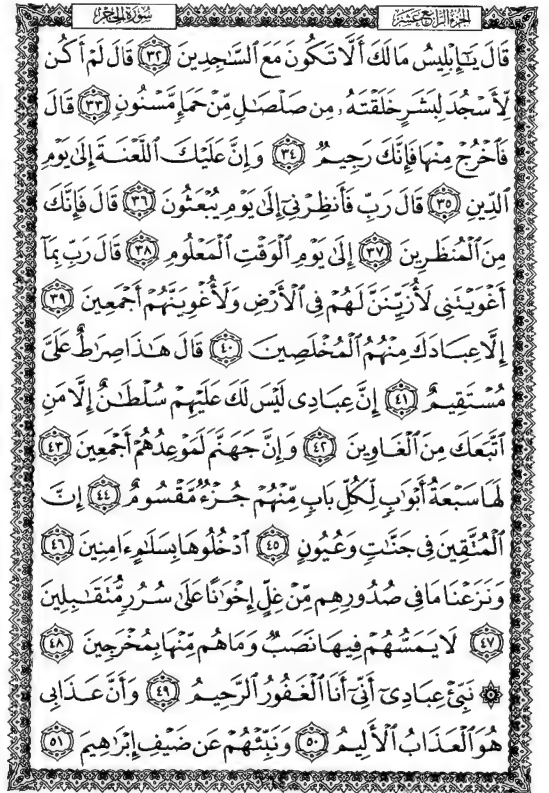 الجزء الرابع عشر
سورة الحجر
قَالَ يَٰٓإِبۡلِيسُ مَا لَكَ أَلَّا تَكُونَ مَعَ ٱلسَّٰجِدِينَ ٣٢ قَالَ لَمۡ أَكُن
لِّأَسۡجُدَ لِبَشَرٍ خَلَقۡتَهُۥ مِن صَلۡصَٰلٖ مِّنۡ حَمَإٖ مَّسۡنُونٖ ٣٣ قَالَ
فَٱخۡرُجۡ مِنۡهَا فَإِنَّكَ رَجِيمٞ ٣٤ وَإِنَّ عَلَيۡكَ ٱللَّعۡنَةَ إِلَىٰ يَوۡمِ
ٱلدِّينِ ٣٥ قَالَ رَبِّ فَأَنظِرۡنِيٓ إِلَىٰ يَوۡمِ يُبۡعَثُونَ ٣٦ قَالَ فَإِنَّكَ
مِنَ ٱلۡمُنظَرِينَ ٣٧ إِلَىٰ يَوۡمِ ٱلۡوَقۡتِ ٱلۡمَعۡلُومِ ٣٨ قَالَ رَبِّ بِمَآ
أَغۡوَيۡتَنِي لَأُزَيِّنَنَّ لَهُمۡ فِي ٱلۡأَرۡضِ وَلَأُغۡوِيَنَّهُمۡ أَجۡمَعِينَ ٣٩
إِلَّا عِبَادَكَ مِنۡهُمُ ٱلۡمُخۡلَصِينَ ٤٠ قَالَ هَٰذَا صِرَٰطٌ عَلَيَّ
مُسۡتَقِيمٌ ٤١ إِنَّ عِبَادِي لَيۡسَ لَكَ عَلَيۡهِمۡ سُلۡطَٰنٌ إِلَّا مَنِ
ٱتَّبَعَكَ مِنَ ٱلۡغَاوِينَ ٤٢ وَإِنَّ جَهَنَّمَ لَمَوۡعِدُهُمۡ أَجۡمَعِينَ ٤٣
لَهَا سَبۡعَةُ أَبۡوَٰبٖ لِّكُلِّ بَابٖ مِّنۡهُمۡ جُزۡءٞ مَّقۡسُومٌ ٤٤ إِنَّ
ٱلۡمُتَّقِينَ فِي جَنَّٰتٖ وَعُيُونٍ ٤٥ ٱدۡخُلُوهَا بِسَلَٰمٍ ءَامِنِينَ ٤٦
وَنَزَعۡنَا مَا فِي صُدُورِهِم مِّنۡ غِلٍّ إِخۡوَٰنًا عَلَىٰ سُرُرٖ مُّتَقَٰبِلِينَ
٤٧ لَا يَمَسُّهُمۡ فِيهَا نَصَبٞ وَمَا هُم مِّنۡهَا بِمُخۡرَجِينَ ٤٨
۞ نَبِّئۡ عِبَادِيٓ أَنِّيٓ أَنَا ٱلۡغَفُورُ ٱلرَّحِيمُ ٤٩ وَأَنَّ عَذَابِي
هُوَ ٱلۡعَذَابُ ٱلۡأَلِيمُ ٥٠ وَنَبِّئۡهُمۡ عَن ضَيۡفِ إِبۡرَٰهِيمَ ٥١